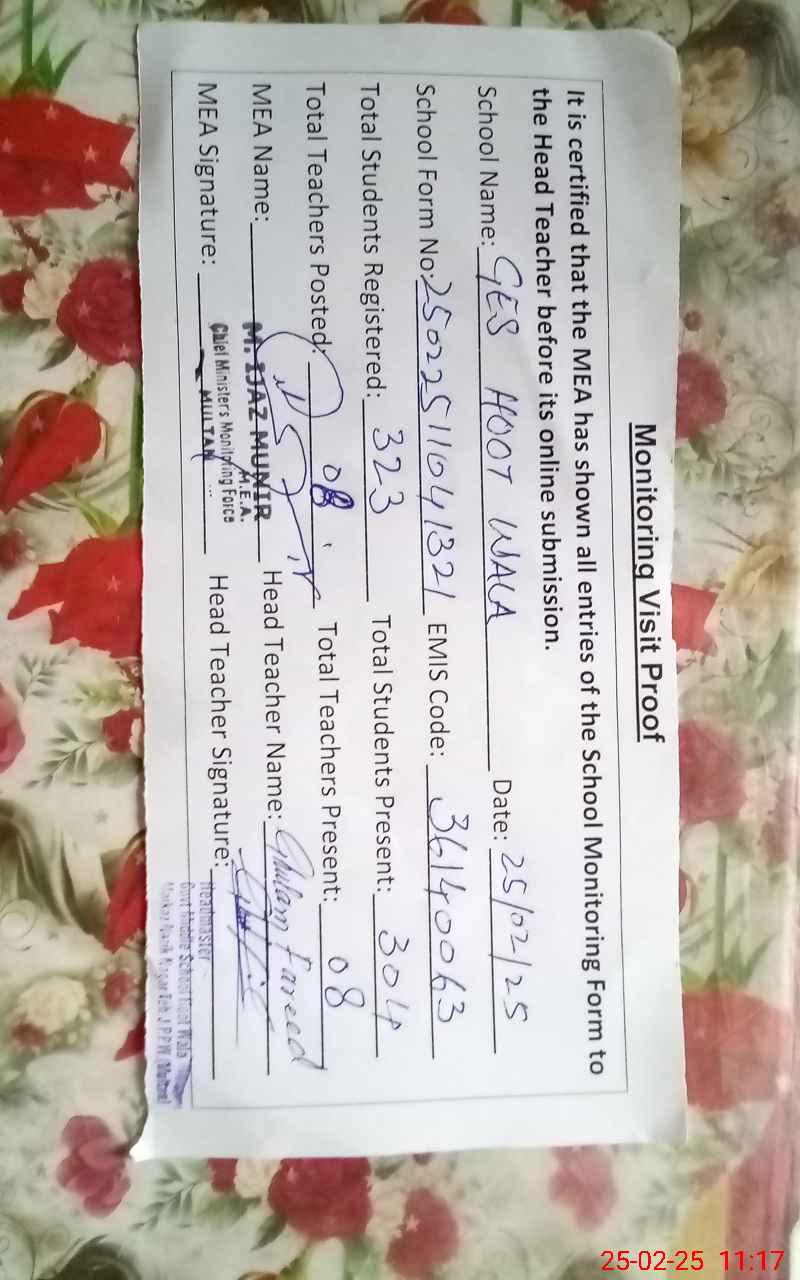 Monitoring Visit Proof
It is certified that the MEA has shown all entries of the School Monitoring Form to
the Head Teacher before its online submission.
School Name: GES HOOT WALA Date: 25/02/25
School Form No: 25022511041321 EMIS Code: 36140063
Total Students Registered: 323 Total Students Present: 304
Total Teachers Posted: 08 Total Teachers Present: 08
MEA Name: M. IJAZ MUNIR Head Teacher Name: Ghulam Fareed
M.E.A.
Chief Minister's Monitoring Force
MEA Signature: MULTAN Head Teacher Signature:
Headmaster
Govt Middle School Hoot Wala
Markaz Teh J.P.P.W. (Multan)
25-02-25 11:17